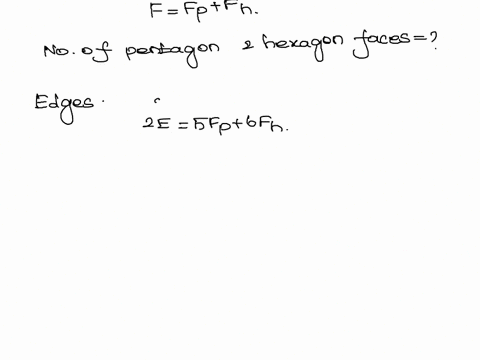 F = Fp + Fh.
No. of pentagon & hexagon faces = ?
Edges.
2E = 5Fp + 6Fh.